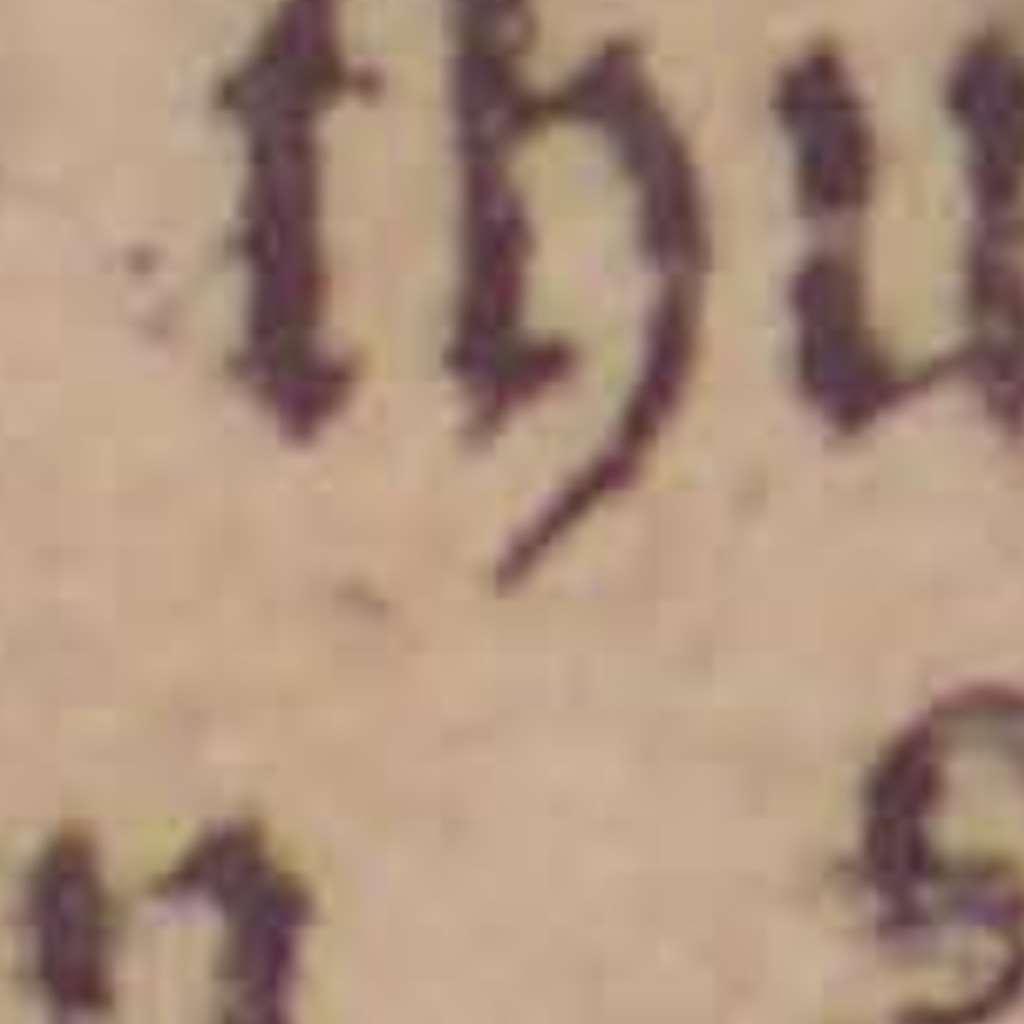 thu
n